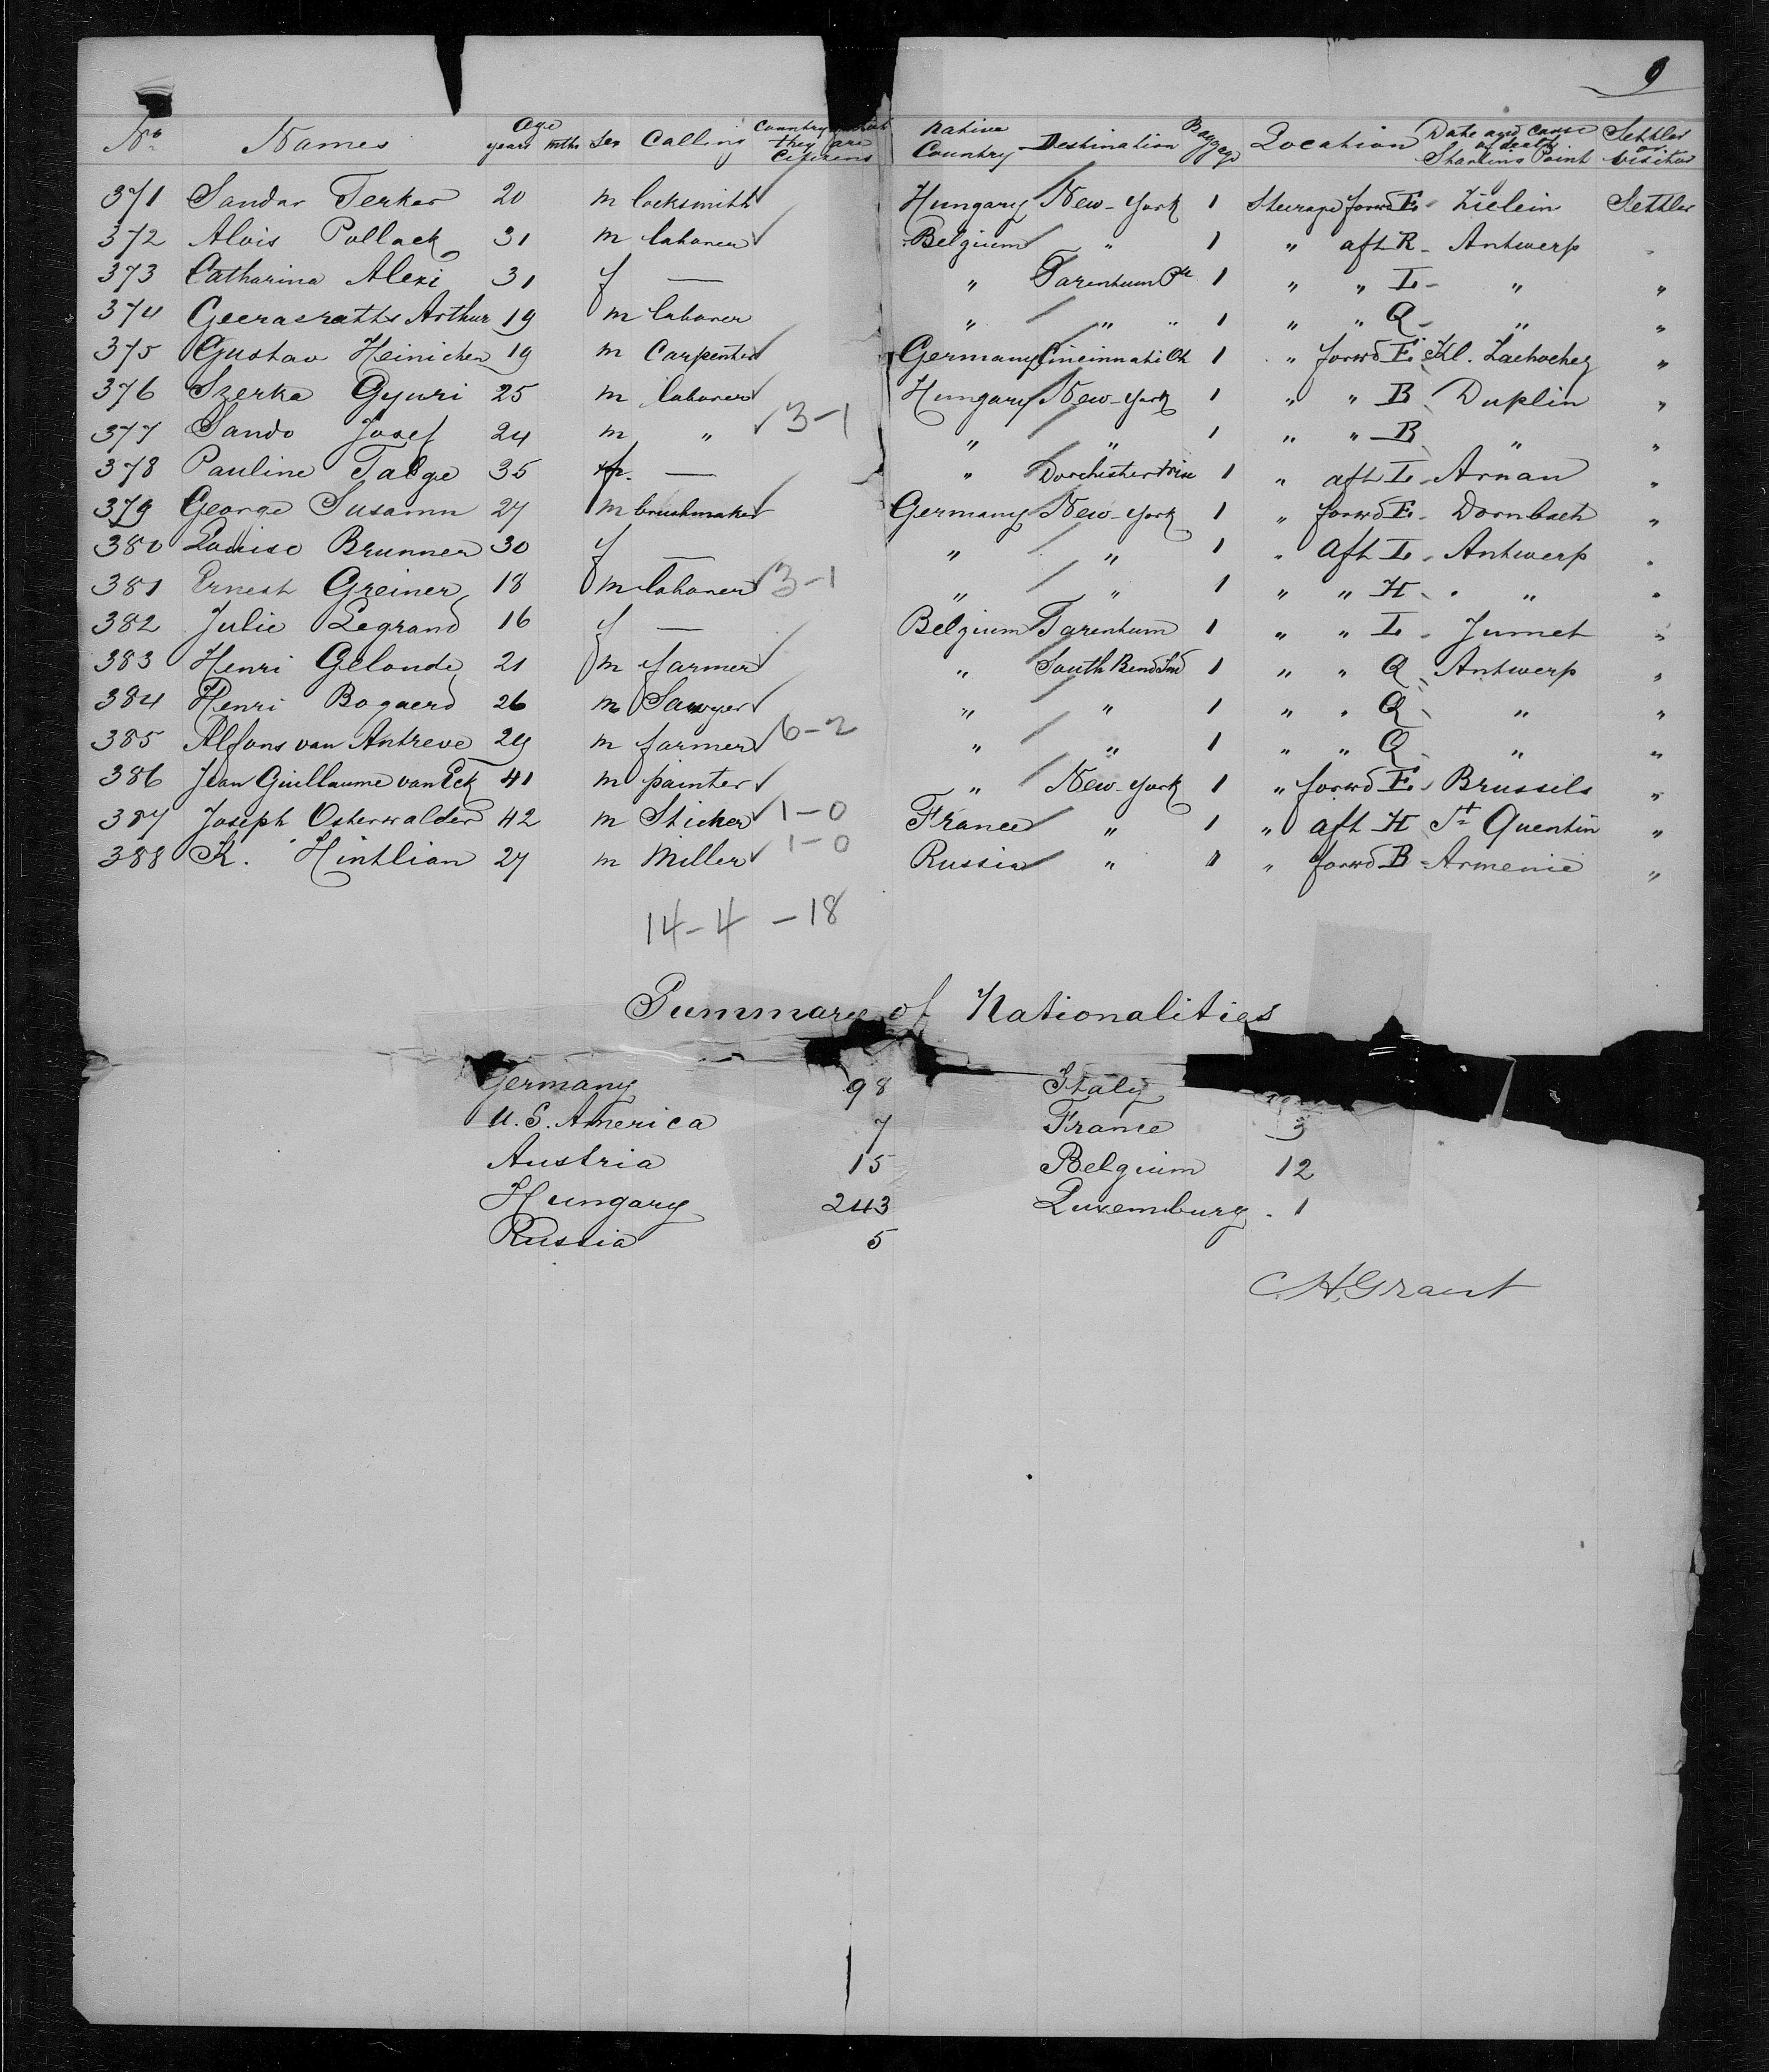 9
No. Names Age years mths Sex Calling Country of which they are Citizens Native Country Destination Baggage Location Date and cause of death Starting Point Settler or Visitor
371 Sandar Terker 20 m locksmith Hungary New-York 1 Steerage forwd E - Zielein Settler
372 Alois Pollack 31 m laborer Belgium " 1 " aft R - Antwerp "
373 Catharina Alexi 31 f — " Tarentum Pa 1 " " L - " "
374 Geeraeraths Arthur 19 m laborer " " " 1 " " Q - " "
375 Gustav Heinichen 19 m Carpenter Germany Cincinnati Oh 1 " forwd E - Kl. "
376 Szerka Gyuri 25 m laborer Hungary New-York 1 " " B - Duplin "
377 Sando Josef 24 m " 3-1 " " 1 " " B - " "
378 Pauline Talge 35 f. — " Dorchester 1 " aft L - Arnan "
379 George Susamn 27 m brushmaker Germany New-York 1 " forwd E - Dornbach "
380 Louise Brunner 30 f — " " 1 " Aft L - Antwerp "
381 Ernest Greiner 18 m laborer 3-1 " " 1 " " H - " "
382 Julie Legrand 16 f — Belgium Tarentum 1 " " L - Jumet "
383 Henri Gelonde 21 m farmer " South Bend Ind 1 " " Q - Antwerp "
384 Henri Bogaerd 26 m Sawyer " " 1 " " Q - " "
385 Alfons van Antreve 29 m farmer 6-2 " " 1 " " Q - " "
386 Jean Guillaume van Eck 41 m painter " New-York 1 " forwd E - Brussels "
387 Joseph Osterwalder 42 m Sticker 1-0 France " 1 " aft H St Quentin "
388 K. Hintlian 27 m Miller 1-0 Russia " 1 " forwd B - Armenie "
14-4 -18
Summary of Nationalities
Germany 98 Italy
U.S. America 7 France 3
Austria 15 Belgium 12
Hungary 243 Luxemburg - 1
Russia 5
C.H. Grant